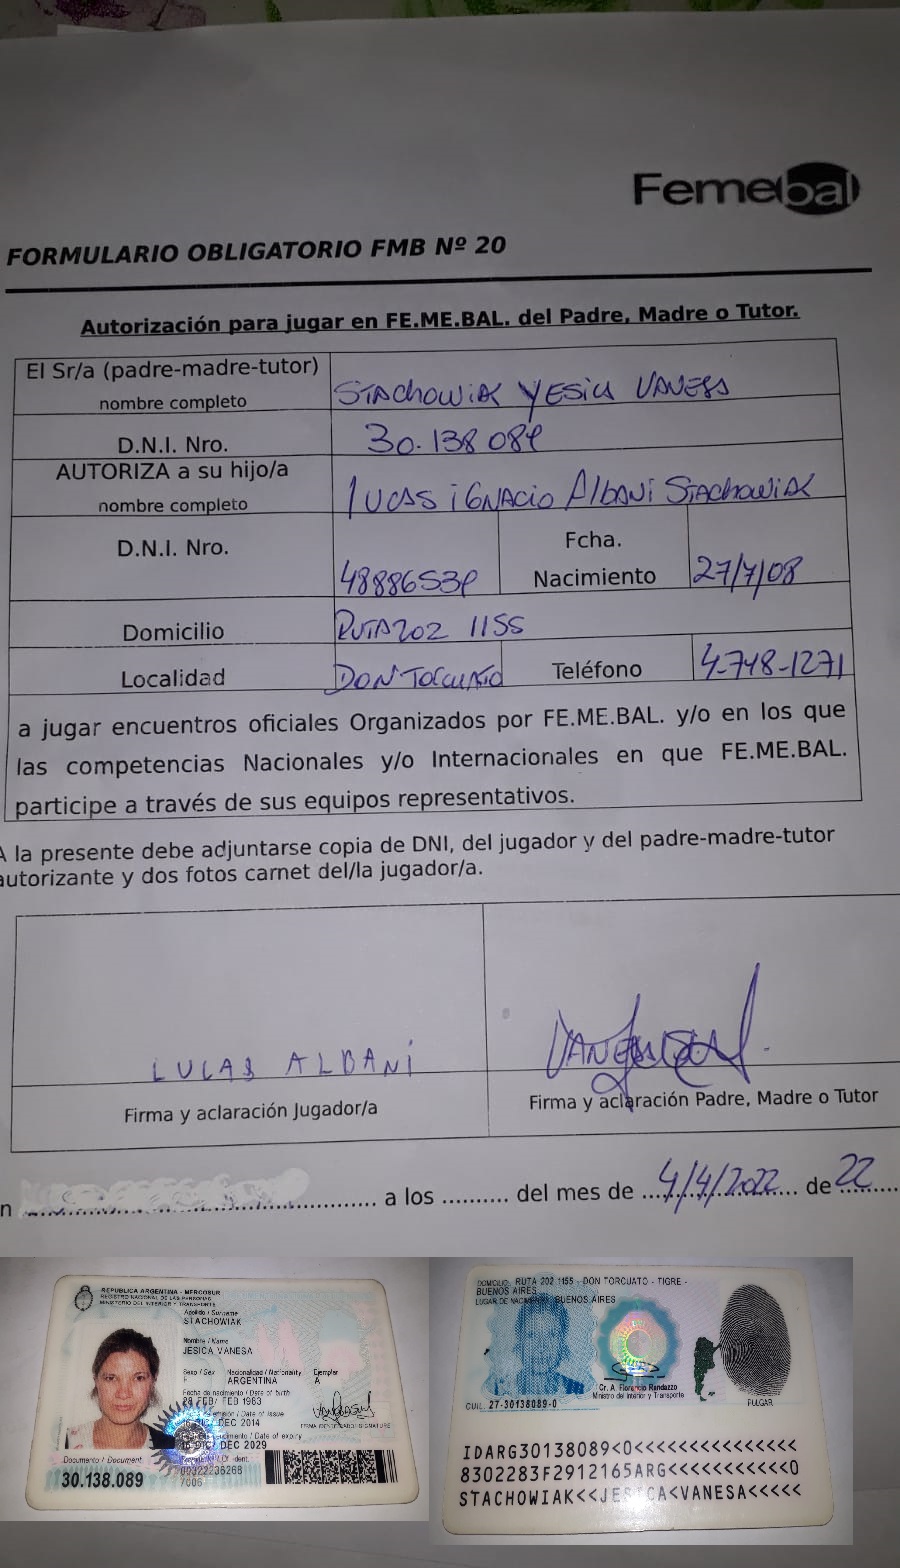 Femebal
FORMULARIO OBLIGATORIO FMB Nº 20
Autorización para jugar en FE.ME.BAL. del Padre, Madre o Tutor.
El Sr/a (padre-madre-tutor)
nombre completo
STAChOWiAK YESicA VANESA
D.N.I. Nro.
30.138 089
AUTORIZA a su hijo/a
nombre completo
LUCAS iGNACiO AlbANi STAChOWiAK
D.N.I. Nro.
48886539
Fcha.
Nacimiento
27/7/08
Domicilio
RUTA 202 1155
Localidad
DON TORCUATO
Teléfono
4-748-1271
a jugar encuentros oficiales Organizados por FE.ME.BAL. y/o en los que
las competencias Nacionales y/o Internacionales en que FE.ME.BAL.
participe a través de sus equipos representativos.
A la presente debe adjuntarse copia de DNI, del jugador y del padre-madre-tutor
autorizante y dos fotos carnet del/la jugador/a.
LUCAS ALBANi
Firma y aclaración Jugador/a
Firma y aclaración Padre, Madre o Tutor
n ........ a los .......... del mes de ...4/4/2022... de 22
REPUBLICA ARGENTINA - MERCOSUR
REGISTRO NACIONAL DE LAS PERSONAS
MINISTERIO DEL INTERIOR Y TRANSPORTE
Apellido / Surname
STACHOWIAK
Nombre / Name
JESICA VANESA
Sexo / Sex
F
Nacionalidad / Nationality
ARGENTINA
Ejemplar
A
Fecha de nacimiento / Date of birth
28 FEB/ FEB 1983
Date of issue
DEC 2014
Date of expiry
16 DIC/ DEC 2029
Documento / Document
30.138.089
DOMICILIO: RUTA 202 1155 - DON TORCUATO - TIGRE -
BUENOS AIRES
LUGAR DE NACIMIENTO: BUENOS AIRES
Cr. A. Florencio Randazzo
Ministro del Interior y Transporte
CUIL: 27-30138089-0
PULGAR
IDARG30138089<0<<<<<<<<<<<<<<<
8302283F2912165ARG<<<<<<<<<<<0
STACHOWIAK<<JESICA<VANESA<<<<<